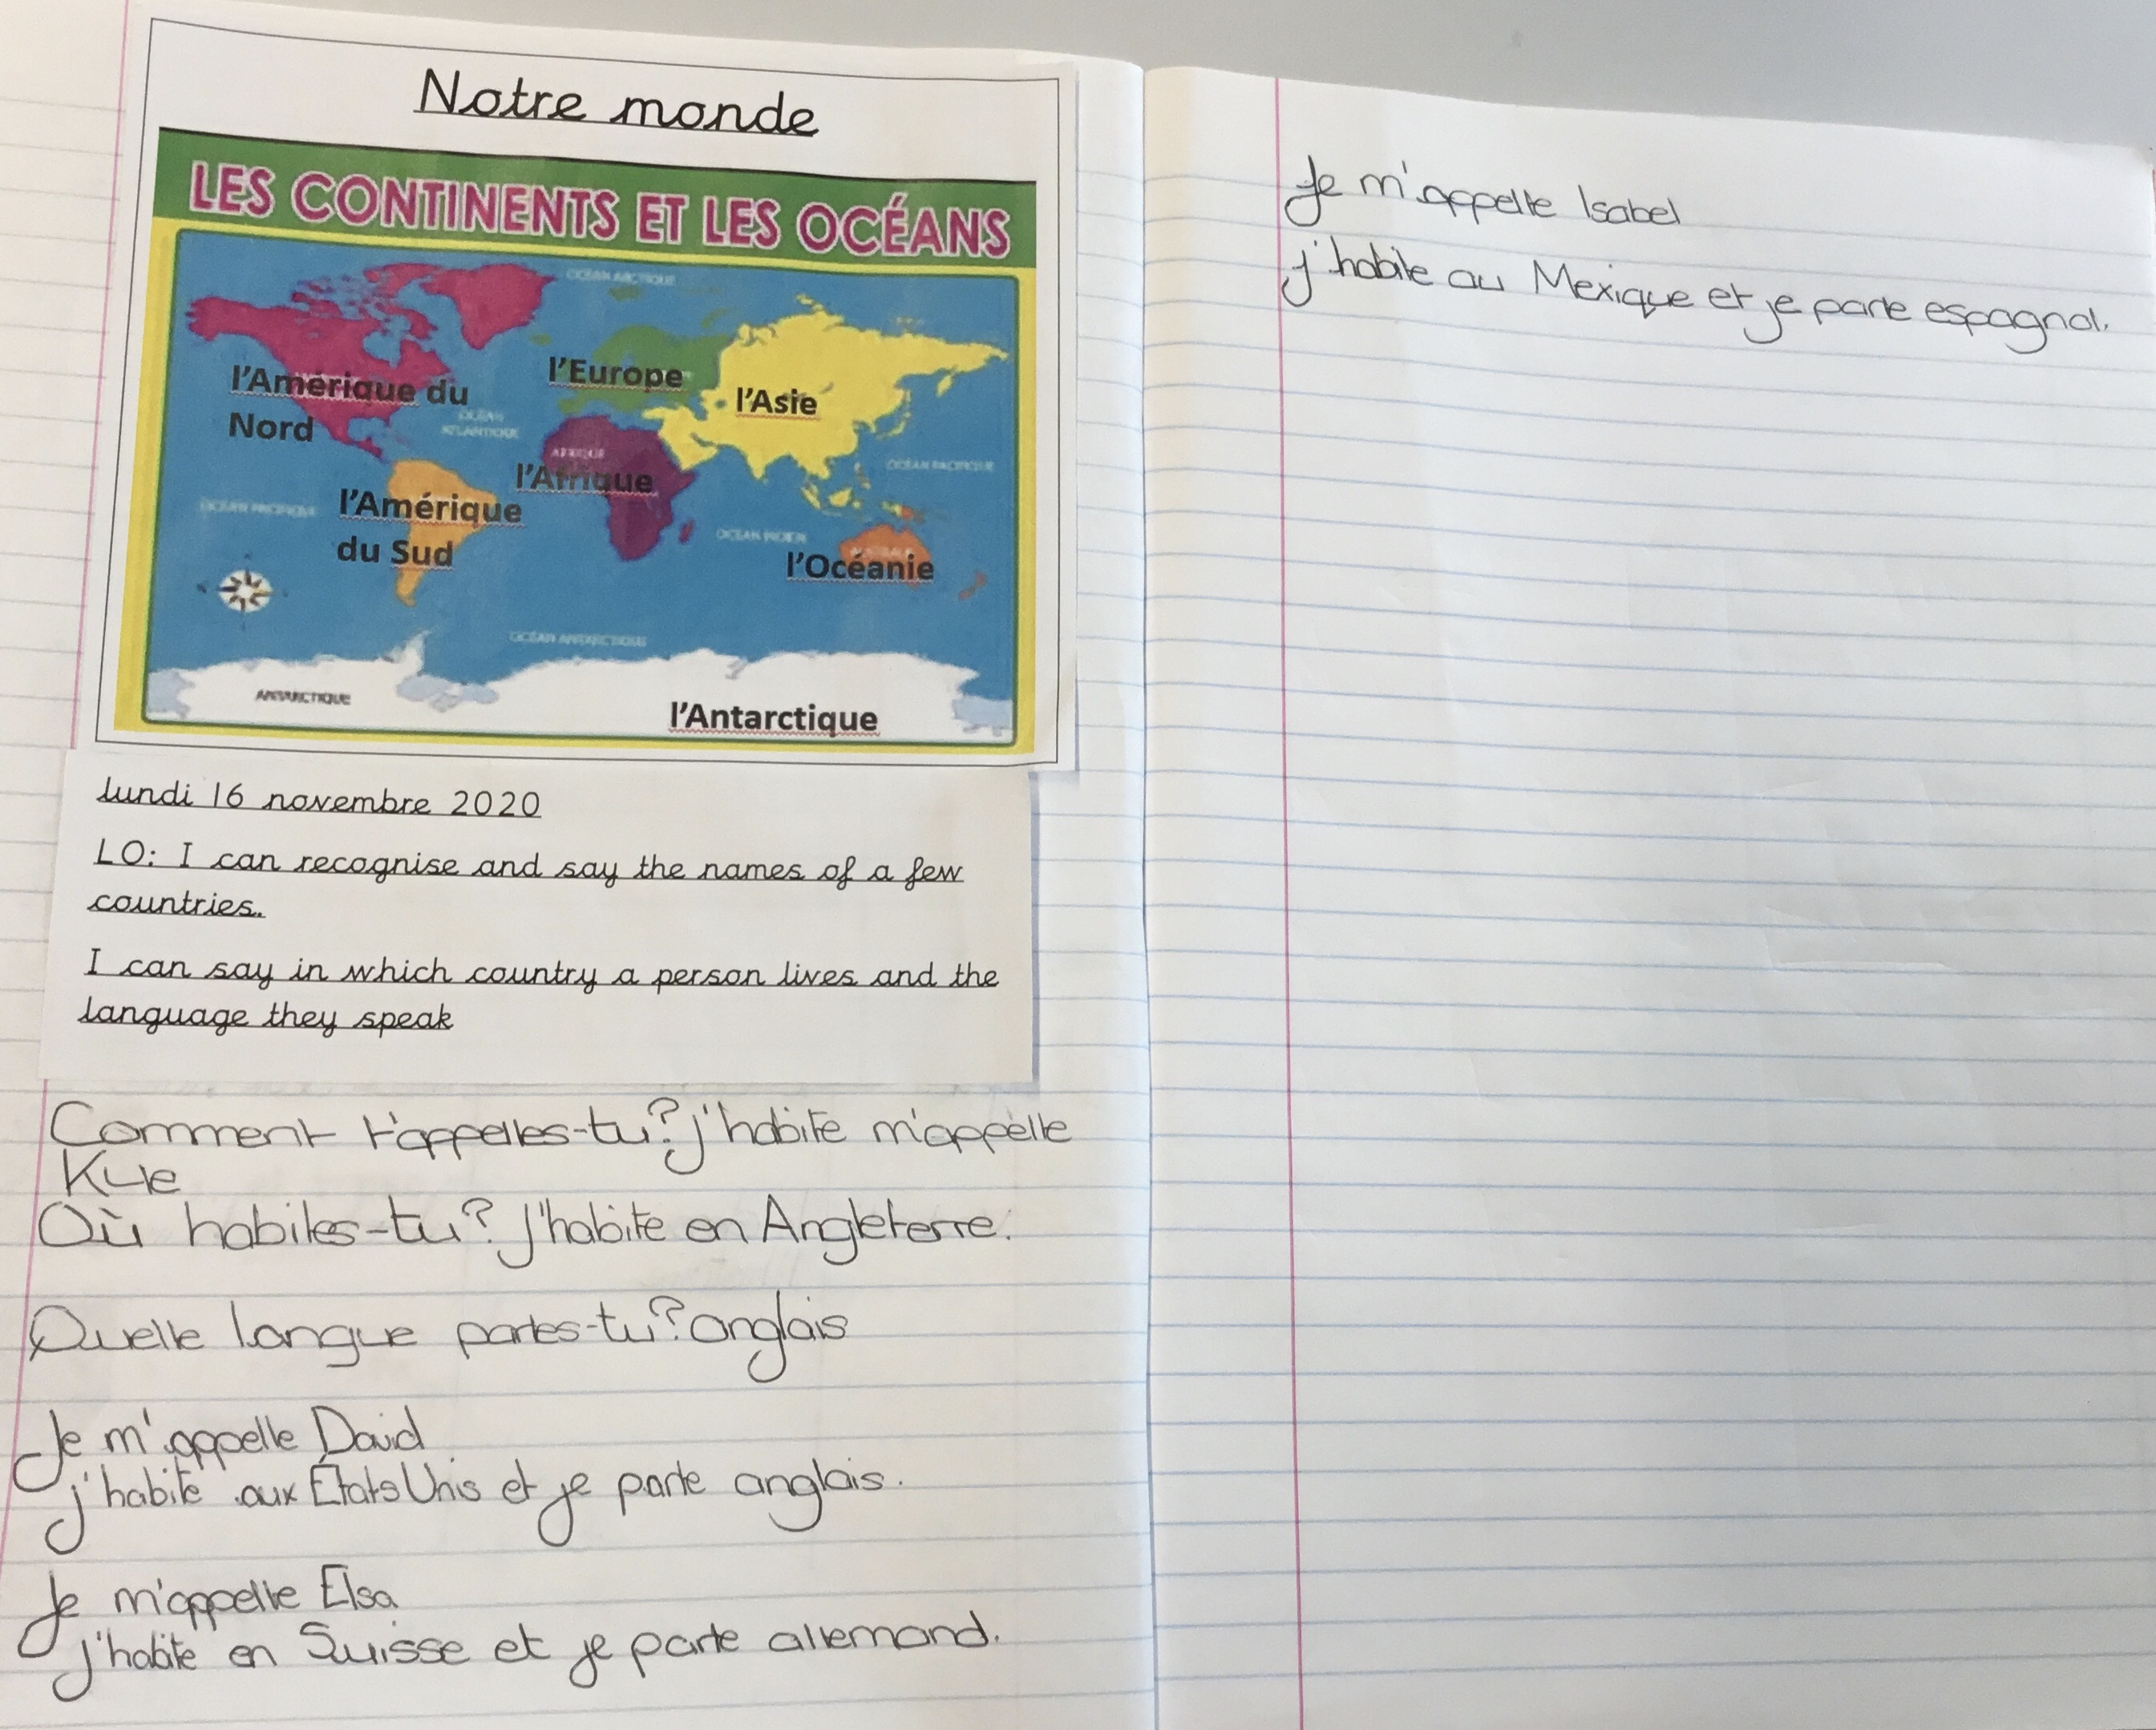 Notre monde
LES CONTINENTS ET LES OCÉANS
OCÉAN ARCTIQUE
l'Amérique du
Nord
l'Europe
l'Asie
OCÉAN
ATLANTIQUE
AFRIQUE
l'Afrique
OCÉAN PACIFIQUE
OCÉAN PACIFIQUE
l'Amérique
du Sud
OCÉAN INDIEN
AUSTRALIE
l'Océanie
OCÉAN ANTARCTIQUE
ANTARCTIQUE
l'Antarctique
lundi 16 novembre 2020
LO: I can recognise and say the names of a few
countries.
I can say in which country a person lives and the
language they speak
Comment t'appelles-tu? j'habite m'appelle
Où habites-tu? J'habite en Angleterre.
Quelle langue parles-tu? anglais
Je m'appelle David
j'habite aux États Unis et je parle anglais.
Je m'appelle Elsa
j'habite en Suisse et je parle allemand.
Je m'appelle Isabel
j'habite au Mexique et je parle espagnol.